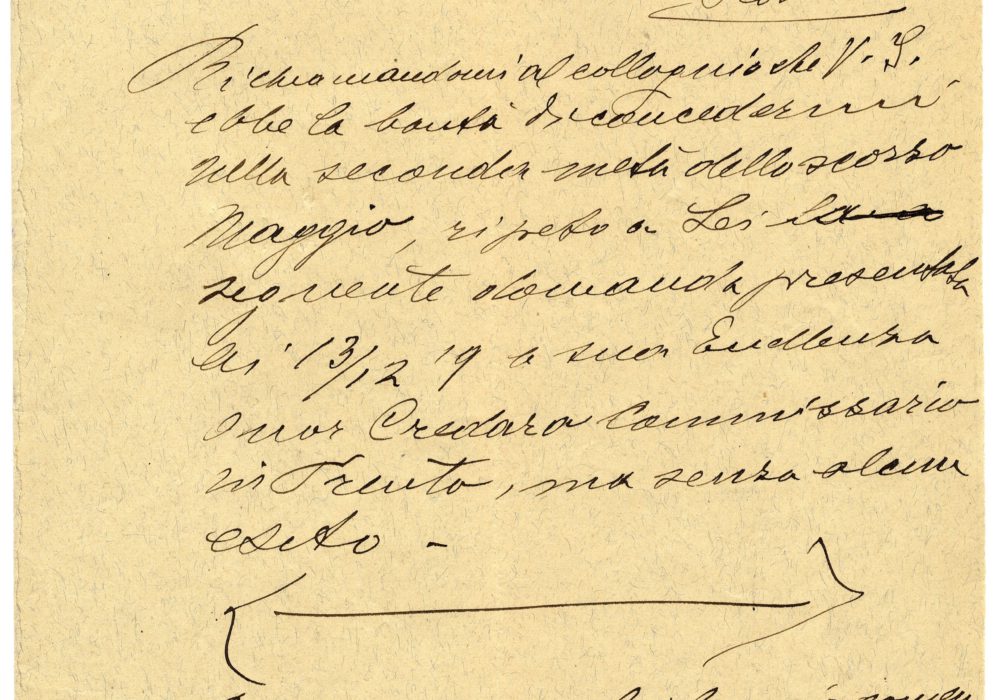 Richiamandomi al colloquio che V. S.
ebbe la bontà di concedermi
nella seconda metà dello scorso
Maggio, ripeto a Lei la
seguente domanda presentata
li 13/12 19 a sua Eccellenza
onor Credaro Commissario
in Trento, ma senza alcun
esito -